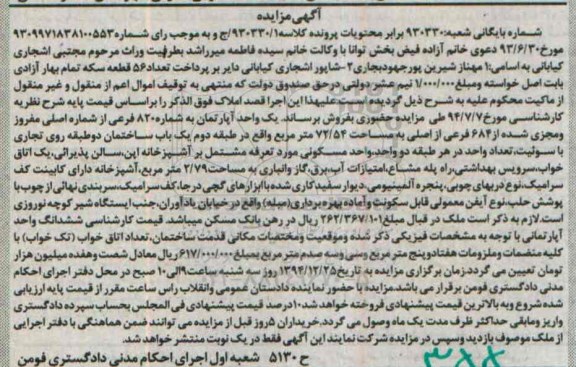 آگهی مزایده
شماره بایگانی شعبه: ۹۳۰۳۳۰ برابر محتویات پرونده کلاسه ۹۳۰۳۳۰/۱ج و به موجب رای شماره ۹۳۰۹۹۷۱۸۳۸۱۰۰۵۵۳
مورخ ۹۳/۶/۳۰ دعوی خانم آزاده فیض بخش توانا با وکالت خانم سیده فاطمه میرراشد بطرفیت وراث مرحوم مجتبی اشجاری
کیابانی به اسامی: ۱-مهناز شیرین پورجهودبجاری ۲-شاپور اشجاری کیابانی دایر بر پرداخت تعداد ۵۶ قطعه سکه تمام بهار آزادی
بابت اصل خواسته ومبلغ ۱/۰۰۰/۰۰۰ نیم عشر دولتی در حق صندوق دولت که منتهی به توقیف اموال اعم از منقول و غیر منقول
از مالکیت محکوم علیه به شرح ذیل گردیده است علیهذا این اجرا قصد املاک فوق الذکر را براساس قیمت پایه شرح نظریه
کارشناسی مورخ ۹۴/۷/۷ طی مزایده حضوری بفروش برساند. یک واحد آپارتمان به شماره ۸۲۰ فرعی از شماره اصلی مفروز
ومجزی شده از ۶۸۴ فرعی از اصلی به مساحت ۷۴/۵۴ متر مربع واقع در طبقه دوم یک باب ساختمان دوطبقه روی تجاری
با سوئیت، تعداد واحد در هر طبقه دو واحد، واحد مسکونی مورد تعرفه مشتمل بر آشپزخانه اپن، سالن پذیرائی، یک اتاق
خواب، سرویس بهداشتی، راه پله مشاع، امتیازات آب، برق، گاز وانباری به مساحت ۲/۷۹ متر مربع، آشپزخانه دارای کابینت کف
سرامیک، نوع دربهای چوبی، پنجره آلمینیومی، دیوار سفیدکاری شده با ابزارهای گچی درجا، کف سرامیک، سربندی نهائی از چوب با
پوشش حلب، نوع آیفن معمولی قابل سکونت و آماده بهره برداری (مبله) واقع در خیابان یادآوران، جنب ایستگاه شیر کوچه نوروزی
است. لازم به ذکر است ملک در قبال مبلغ ۲۶۲/۳۶۷/۱۰۱ ریال در رهن بانک مسکن میباشد. قیمت کارشناسی ششدانگ واحد
آپارتمانی با توجه به مشخصات فیزیکی ذکر شده وموقعیت ومختصات مکانی قدمت ساختمان، تعداد اتاق خواب (تک خواب) با
کلیه منضمات وملزومات هفتادوپنج متر مربع وسی وسه صدم متر مربع بمبلغ ۶۱۷/۰۰۰/۰۰۰ ریال معادل شصت وهفده میلیون هزار
تومان تعیین می گردد. زمان برگزاری مزایده به تاریخ ۱۳۹۴/۱۲/۲۵ روز سه شنبه ساعت ۹ الی ۱۰ صبح در محل دفتر اجرای احکام
مدنی دادگستری فومن برقرار می باشد. مزایده با حضور نماینده دادستان عمومی وانقلاب راس ساعت مقرر از قیمت پایه ارزیابی
شده شروع وبه بالاترین قیمت پیشنهادی فروخته خواهد شد. ۱۰ درصد قیمت پیشنهادی فی المجلس بحساب سپرده دادگستری
واریز ومابقی حداکثر ظرف مدت یک ماه وصول می گردد. خریداران ۵ روز قبل از مزایده می توانند ضمن هماهنگی با دفتر اجرایی
از ملک موصوف بازدید وسپس در مزایده شرکت نمایند این آگهی فقط در یک نوبت منتشر خواهد شد.
ح ۵۱۳۰ شعبه اول اجرای احکام مدنی دادگستری فومن